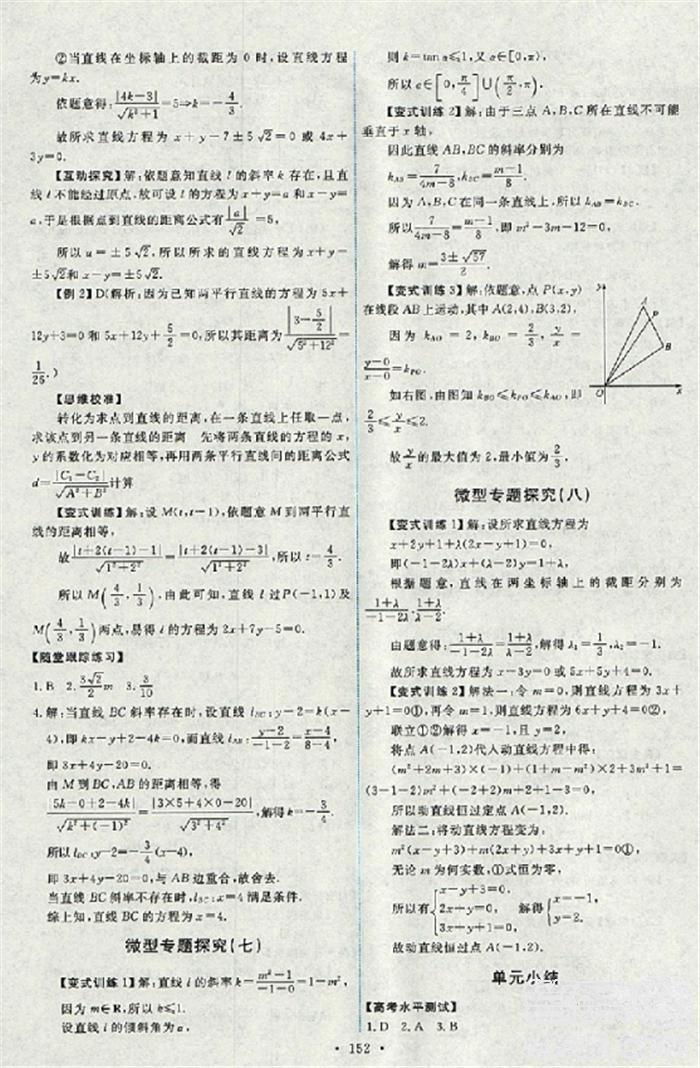 ②当直线在坐标轴上的截距为0时,设直线方程
为y=kx.
依题意得:|4k-3|/√(k²+1)=5⇒k=-4/3.
故所求直线方程为 x+y-7±5√2=0 或 4x+
3y=0.
【互动探究】解:依题意知直线l的斜率k存在,且直
线l不能经过原点.故可设l的方程为x+y=a和x-y=
a,于是根据点到直线的距离公式有|a|/√2=5,
所以a=±5√2,所以所求的直线方程为x+y=
±5√2和x-y=±5√2.
【例2】D(解析:因为已知两平行直线的方程为5x+
12y+3=0和5x+12y+5/2=0,所以其距离为|3-5/2|/√(5²+12²)=
1/26.)
【思维校准】
转化为求点到直线的距离,在一条直线上任取一点,
求该点到另一条直线的距离 先将两条直线的方程的x,
y的系数化为对应相等,再用两条平行直线间的距离公式
d=|C₁-C₂|/√(A²+B²)计算
【变式训练】解:设M(t,t-1),依题意M到两平行直
线的距离相等,
故|t+2(t-1)-1|/√(1²+2²)=|t+2(t-1)-3|/√(1²+2²),所以t=4/3.
所以M(4/3,1/3).由此可知,直线l过P(-1,1)及
M(4/3,1/3)两点,易得l的方程为2x+7y-5=0.
【随堂跟踪练习】
1.B 2.3√2/2m 3.3/10
4.解:当直线BC斜率存在时,设直线l_BC:y-2=k(x-
4),即kx-y+2-4k=0,而直线l_AB:(y-2)/(-1-2)=(x-4)/(8-4),
即3x+4y-20=0.
由M到BC,AB的距离相等,得
|5k-0+2-4k|/√(k²+(-1)²)=|3×5+4×0-20|/√(3²+4²),解得k=-3/4.
所以l_BC:y-2=-3/4(x-4),
即3x+4y-20=0,与AB边重合,故舍去.
当直线BC斜率不存在时,l_BC:x=4满足条件.
综上知,直线BC的方程为x=4.
微型专题探究(七)
【变式训练1】解:直线l的斜率k=(m²-1)/(-1-0)=1-m²,
因为m∈R,所以k≤1.
设直线l的倾斜角为α,
则k=tan α≤1,又α∈[0,π),
所以α∈[0,π/4]∪(π/2,π).
【变式训练2】解:由于三点A,B,C所在直线不可能
垂直于x轴,
因此直线AB,BC的斜率分别为
k_AB=7/(4m-8),k_BC=(m-1)/8.
因为A,B,C在同一条直线上,所以k_AB=k_BC.
所以7/(4m-8)=(m-1)/8,即m²-3m-12=0,
解得m=(3±√57)/2.
【变式训练3】解:依题意,点P(x,y)
在线段AB上运动,其中A(2,4),B(3,2),
因为k_AO=2,k_BO=2/3,y/x=
(y-0)/(x-0)=k_PO.
如右图,由图知k_BO≤k_PO≤k_AO,即
2/3≤y/x≤2.
故y/x的最大值为2,最小值为2/3.
y
A
P
B
O
x
微型专题探究(八)
【变式训练1】解:设所求直线方程为
x+2y+1+λ(2x-y+1)=0,
即(-1-2λ)x+(λ-2)y=1+λ,
根据题意,直线在两坐标轴上的截距分别为
(1+λ)/(-1-2λ),(1+λ)/(λ-2).
由题意得:(1+λ)/(-1-2λ)=(1+λ)/(λ-2),解得λ₁=1/3,λ₂=-1.
故所求直线方程为x-3y=0或5x+5y+4=0.
【变式训练2】解法一:令m=0,则直线方程为3x+
y+1=0①,再令m=1,则直线方程为6x+y+4=0②,
联立①②解得x=-1,且y=2,
将点A(-1,2)代入动直线方程中得:
(m²+2m+3)×(-1)+(1+m-m²)×2+3m²+1=
(3-1-2)m²+(-2+2)m+2+1-3=0,
所以动直线恒过定点A(-1,2).
解法二:将动直线方程变为:
m²(x-y+3)+m(2x+y)+3x+y+1=0①,
无论m为何实数,①式恒为零,
所以有{x-y+3=0, 2x+y=0, 3x+y+1=0, 解得{x=-1, y=2.
故动直线恒过点A(-1,2).
单元小结
【高考水平测试】
1.D 2.A 3.B
• 152 •